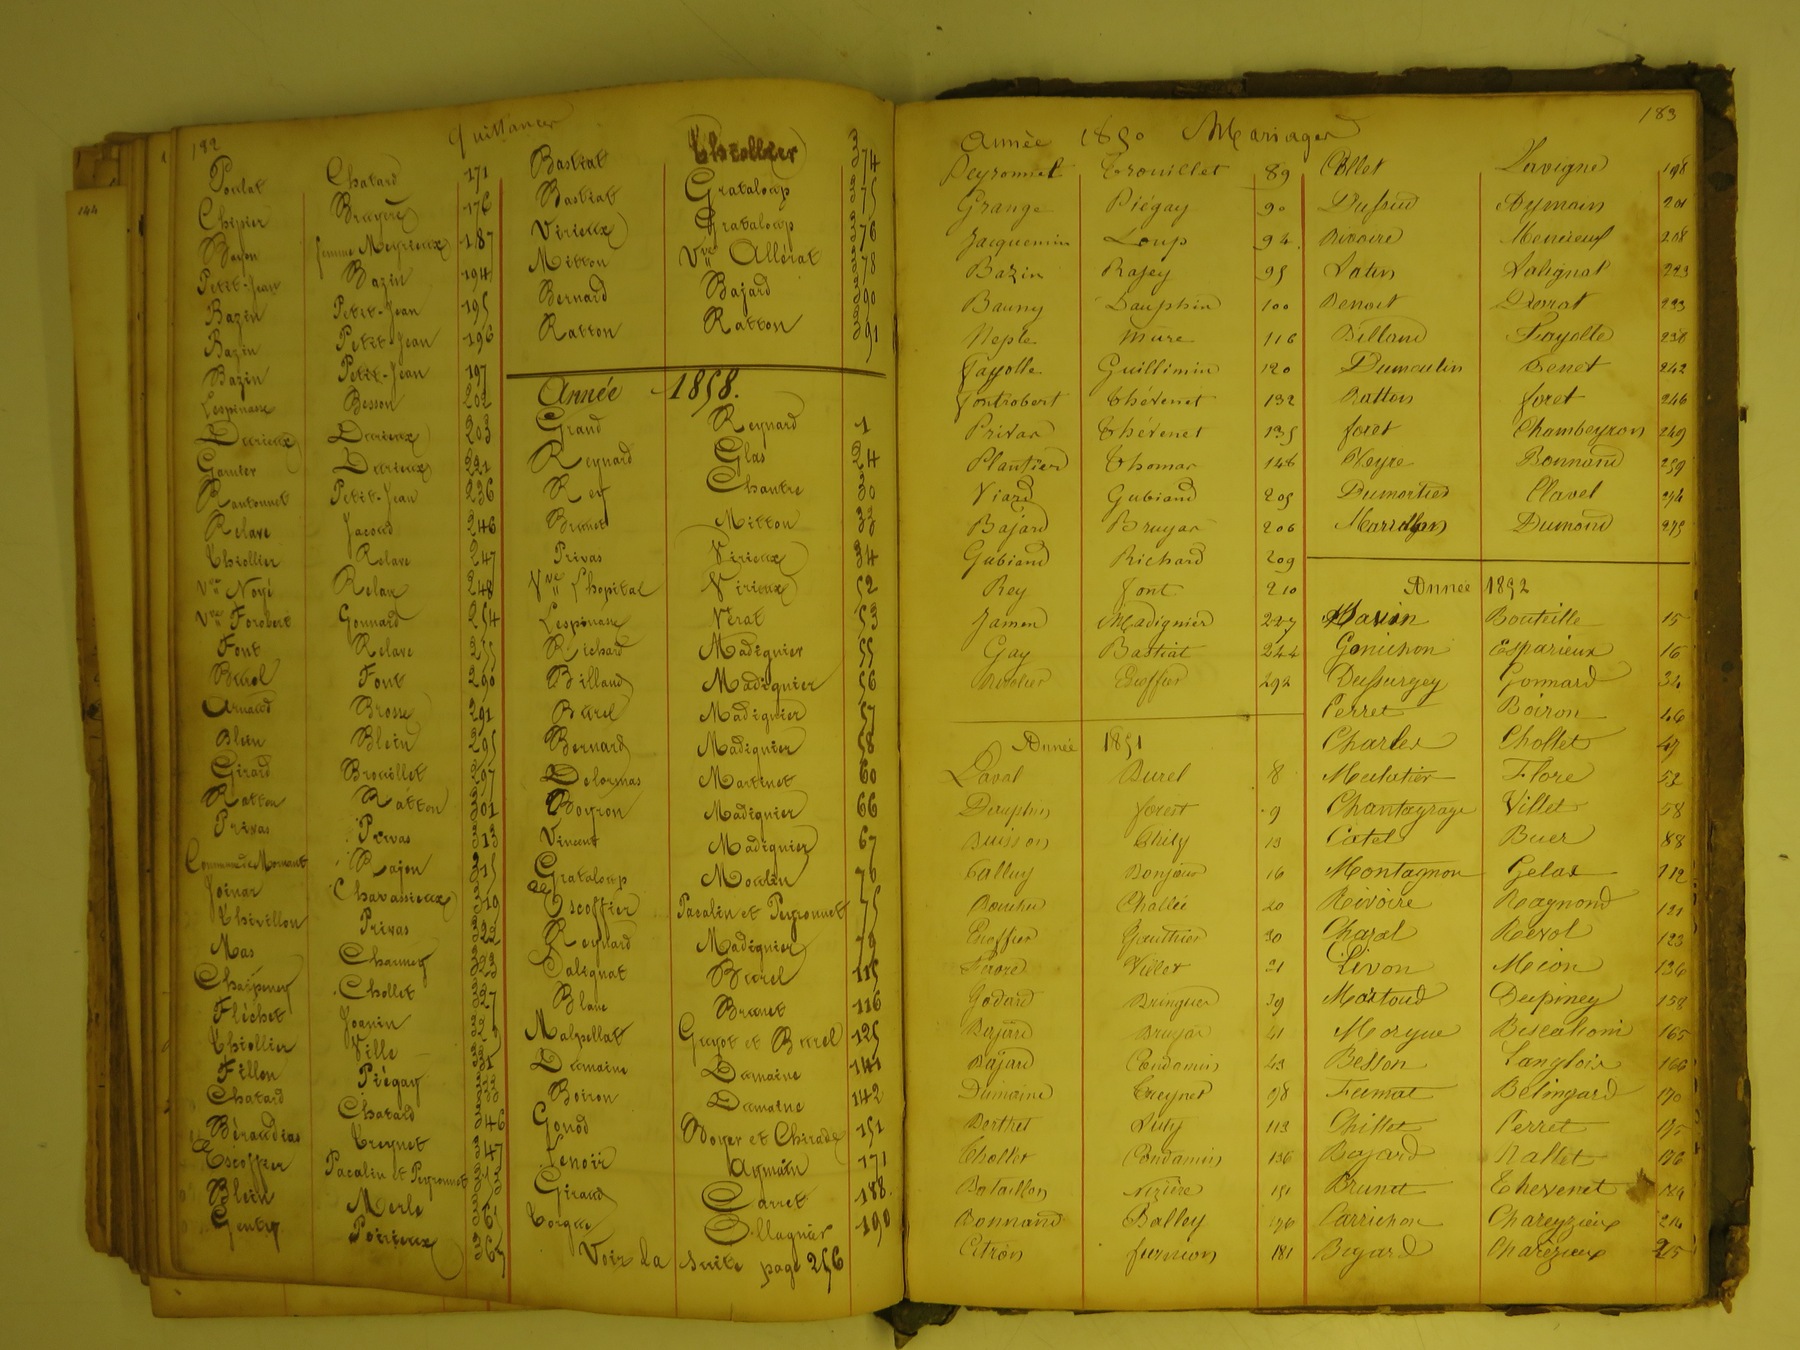 144
182
Quittances
Poulat Chatard 171
Chipier Bruyère 176
Bayon femme Meyrieux 187
Petit-Jean Bazin 194
Bazin Petit-Jean 195
Bazin Petit-Jean 196
Bazin Petit-Jean 197
Lespinasse Besson 202
Durieux Durieux 203
Garnier Durieux 221
Rantonnet Petit-Jean 236
Relave Jacoud 246
Thiollier Relave 247
Vve Noyé Relave 248
Vve Forobert Gonnard 254
Font Relave 255
Burel Font 290
Arnaud Brosse 291
Blein Blein 295
Girard Brouillet 297
Ratton Ratton 301
Privas Privas 313
Commune de Mornant Rajon 315
Joinar Chavassieux
Thivillon Privas
Mas Charmey
Charpeney Chollet
Fléchet Joanin
Thiollier Ville
Fillon Piégay
Chatard Chatard
Béraudias Treynet 346
Escoffier Pacalin et Peyronnet 347
Blein Merle
Gentry Poirieux
Bastiat Thiollier 374
Bastiat Grataloup 375
Virieux Grataloup 376
Mitton Vve Allérat 378
Bernard Bajard 390
Ratton Ratton 391
Année 1858.
Grand Reynard 1
Reynard Glas 24
Rey Chantre 30
Brunet Mitton 33
Privas Virieux 34
Vve L'hopital Virieux 52
Lespinasse Vérat 53
Richard Madignier 55
Billaud Madignier 56
Burel Madignier 57
Bernard Madignier 58
Delormas Martinet 60
Boyron Madignier 66
Vincent Madignier 67
Grataloup Moulin 76
Escoffier Pacalin et Peyronnet 75
Reynard Madignier 79
Salignat Burel 115
Blanc Brunet 116
Malpellat Guyot et Burel 125
Dumaine Dumaine 141
Boiron Dumaine 142
Gonod Boyer et Chirade 151
Lenoir Aymain 171
Giraud Carret 188
Torgue Ollagnier 190
Voir la suite page 256
183
Année 1850 Mariages
Peyronnet Trouillet 89
Grange Piégay 90
Jacquemin Loup 94
Bazin Rajey 95
Bauny Dauphin 100
Neple Mure 116
Fayolle Guillimin 120
Fontrobert Thévenet 132
Privas Thévenet 135
Plantier Thomas 146
Viard Gubiand 205
Bajard Bruyas 206
Gubiand Richard 209
Rey Font 210
Jamen Madignier 227
Gay Bastiat 244
Escoffier 292
Année 1851
Laval Burel 8
Dauphin forest 9
Buisson Thily 13
Talluy Bonjour 16
Boucher Challée 20
Escoffier Gauthier 30
Villet 31
Godard Bringuer 39
Bajard Bruyas 41
Bajard Condamin 43
Dumaine Treynet 98
Berthet Luly 113
Chollet Condamin 136
Bataillon Nizière 151
Bonnand Balloy 176
Citron furnion 181
Collet Lavigne 198
Dufaud Aymain 201
Rivoire 208
Salignat 223
Benoit Dorat 233
Billaud Fayolle 238
Dumoulin Genet 242
Ratton foret 246
foret Chambeyron 249
Veyre Bonnand 259
Dumortier Clavel 274
Dumond 275
Année 1852
Bouteille 15
Gonichon Esparieux 16
Dussurgey Gonnard 34
Perret Boiron 46
Charles Chollet 47
Mulatier Flore 52
Chantagrage Villet 58
Catel Buer 88
Montagnon Gelas 112
Rivoire Raymond 121
Charal Revol 123
Livon Mion 136
Martoud Dupiney 158
Morgue Biscationi 165
Besson Langlois 166
Fumat Belingard 170
Chillet Perret 175
Bajard Rallet 176
Brunet Thevenet 184
Parrichon Chareyzieux 214
Bajard Charézieux 215